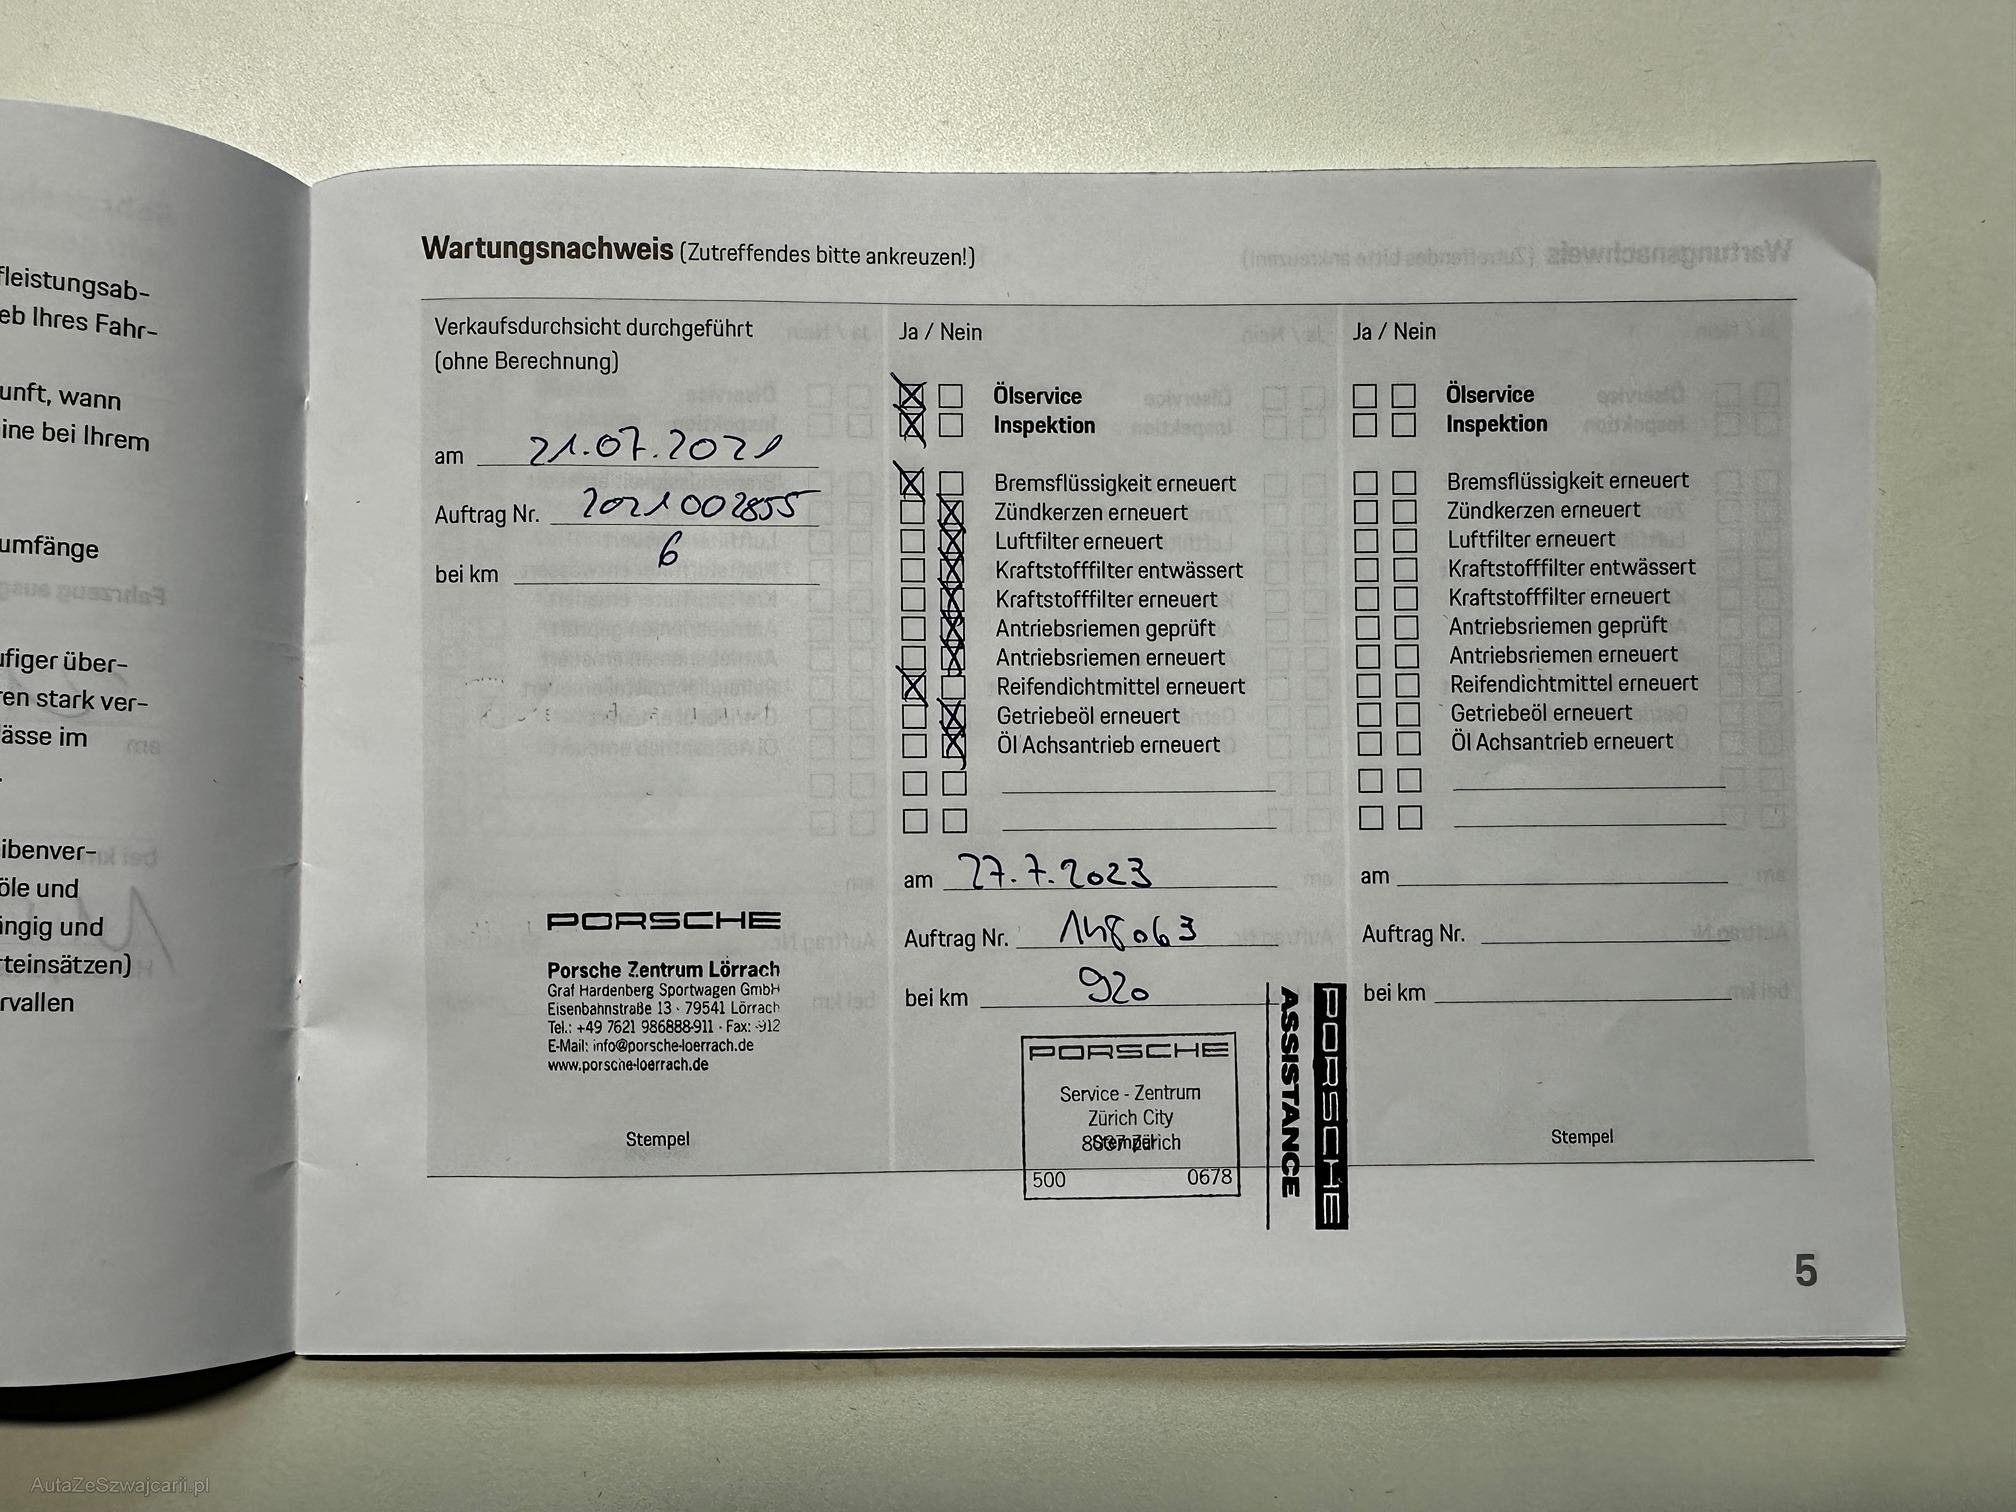 fleistungsab-
eb Ihres Fahr-
unft, wann
ine bei Ihrem
umfänge
ufiger über-
en stark ver-
ässe im
ibenver-
öle und
ängig und
teinsätzen)
rvallen
Wartungsnachweis (Zutreffendes bitte ankreuzen!)
Verkaufsdurchsicht durchgeführt
(ohne Berechnung)
am 21.07.2021
Auftrag Nr. 2021002855
bei km 6
PORSCHE
Porsche Zentrum Lörrach
Graf Hardenberg Sportwagen GmbH
Eisenbahnstraße 13 · 79541 Lörrach
Tel.: +49 7621 986888-911 · Fax: -912
E-Mail: info@porsche-loerrach.de
www.porsche-loerrach.de
Stempel
Ja / Nein
Ölservice
Inspektion
Bremsflüssigkeit erneuert
Zündkerzen erneuert
Luftfilter erneuert
Kraftstofffilter entwässert
Kraftstofffilter erneuert
Antriebsriemen geprüft
Antriebsriemen erneuert
Reifendichtmittel erneuert
Getriebeöl erneuert
Öl Achsantrieb erneuert
am 27.7.2023
Auftrag Nr. 148063
bei km 920
PORSCHE
Service - Zentrum
Zürich City
8037 Zürich
Stempel
500 0678
ASSISTANCE
PORSCHE
Ja / Nein
Ölservice
Inspektion
Bremsflüssigkeit erneuert
Zündkerzen erneuert
Luftfilter erneuert
Kraftstofffilter entwässert
Kraftstofffilter erneuert
Antriebsriemen geprüft
Antriebsriemen erneuert
Reifendichtmittel erneuert
Getriebeöl erneuert
Öl Achsantrieb erneuert
am
Auftrag Nr.
bei km
Stempel
5
AutaZeSzwajcarii.pl